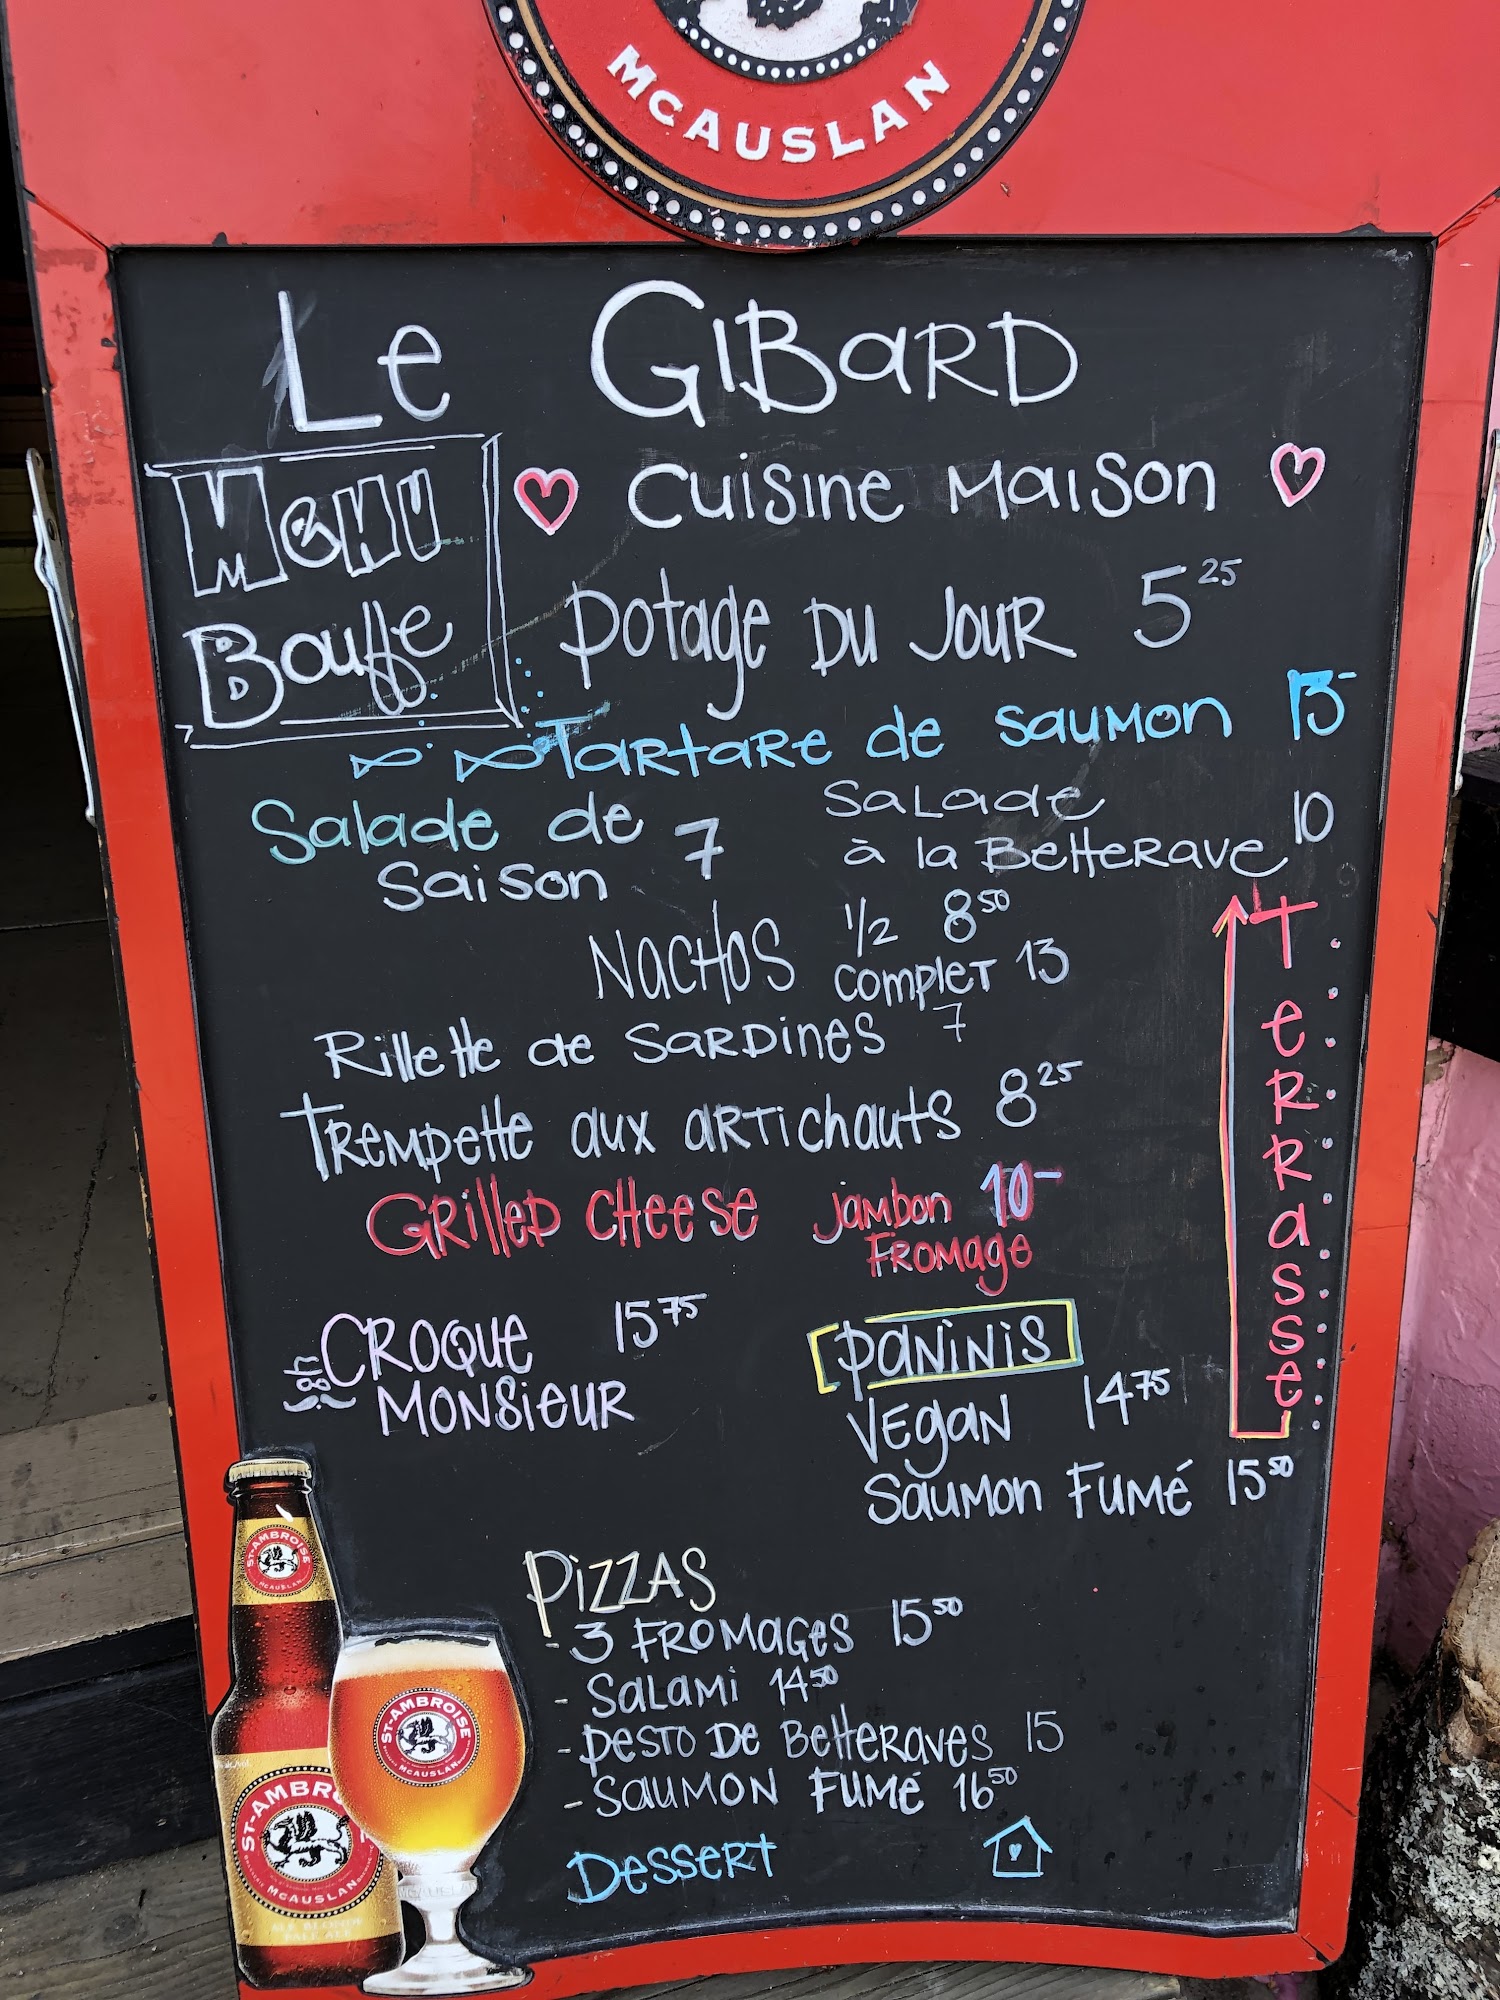 McAUSLAN
Le GIBARD
Menu
Bouffe
Cuisine Maison
Potage du Jour 5 25
Tartare de saumon 13-
Salade de
Saison 7
Salade
à la Betterave 10
Nachos 1/2 8 50
complet 13
Rillette de sardines 7
Trempette aux artichauts 8 25
Grilled cheese jambon 10-
fromage
Terrasse
Croque 15 75
Monsieur
Paninis
Vegan 14 75
Saumon fumé 15 50
Pizzas
- 3 fromages 15 50
- Salami 14 50
- Pesto de Betteraves 15
- Saumon fumé 16 50
Dessert
ST-AMBROISE
McAUSLAN
ST-AMBROISE
McAUSLAN
ST-AMBRO
McAUSLAN
McAUSLAN
ALE BLONDE
PALE ALE